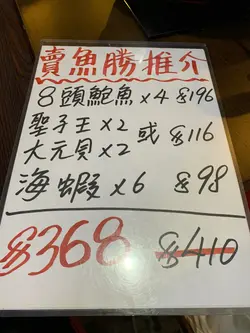 賣魚勝推介
8頭鮑魚 x4 $196
聖子王 x2 或 $116
大元貝 x2
海蝦 x6 $98
$368 $410